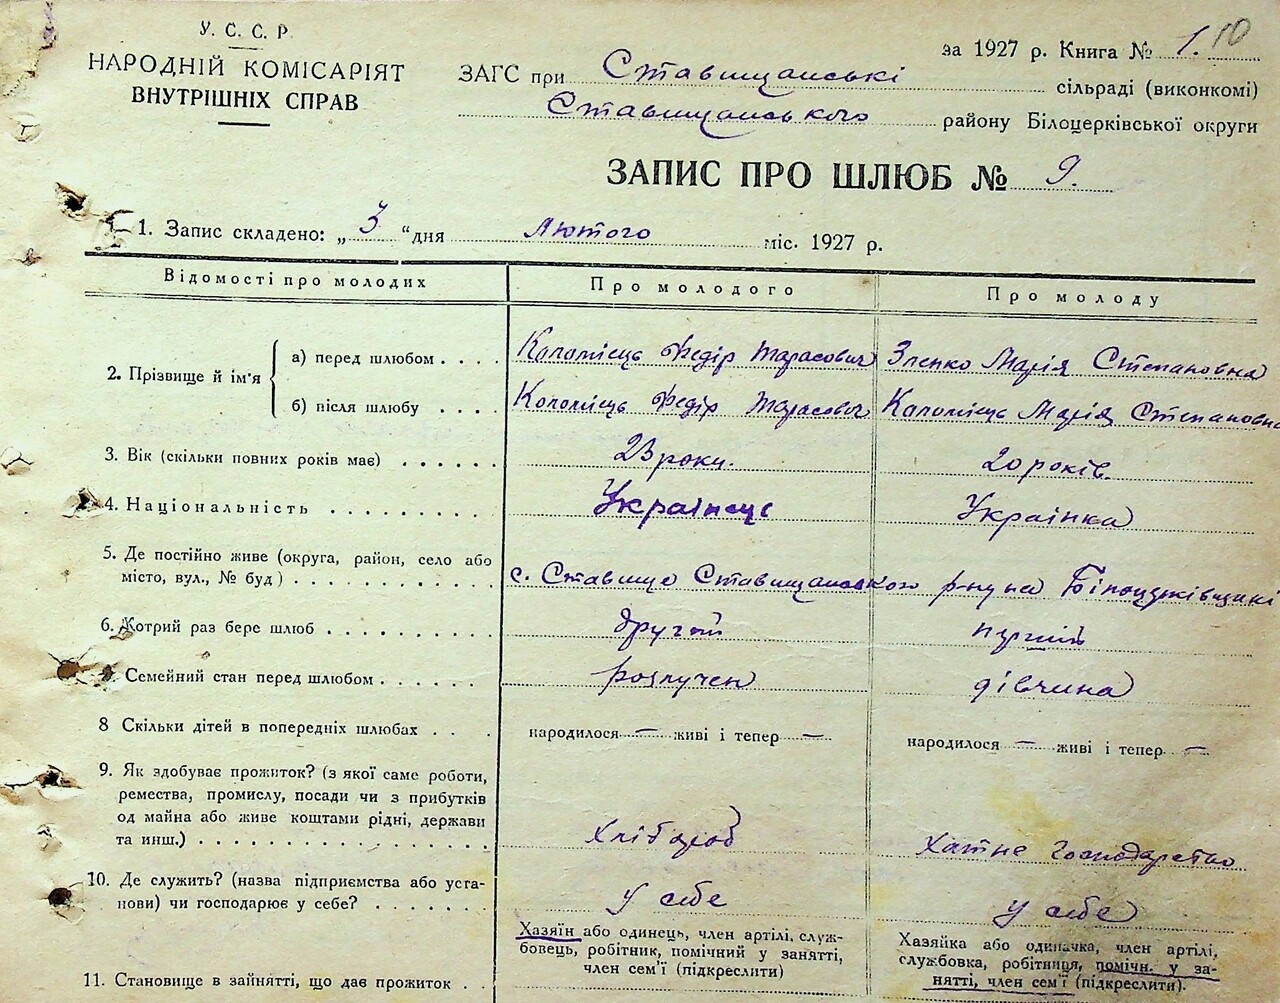 У. С. С. Р.
за 1927 р. Книга № 1. 10
НАРОДНІЙ КОМІСАРІЯТ
ВНУТРІШНІХ СПРАВ
ЗАГС при Ставищанські сільраді (виконкомі)
Ставищанського району Білоцерківської округи
ЗАПИС ПРО ШЛЮБ № 9.
1. Запис складено: „3“ дня лютого міс. 1927 р.
Відомості про молодих Про молодого Про молоду
2. Прізвище й ім'я
а) перед шлюбом . . . . Коломієць Федір Тарасович Зленко Марія Степановна
б) після шлюбу . . . . Коломієць Федір Тарасович Коломієць Марія Степановна
3. Вік (скільки повних років має) . . . . . . 23 роки. 20 років.
4. Національність . . . . . . . . . Українець Українка
5. Де постійно живе (округа, район, село або
місто, вул., № буд) . . . . . . . . . . с. Ставище Ставищанського району Білоцерківщині
6. Котрий раз бере шлюб . . . . . . . . . другий перший
Семейний стан перед шлюбом . . . . . . розлучен дівчина
8 Скільки дітей в попередніх шлюбах . . . народилося — живі і тепер — народилося — живі і тепер —
9. Як здобуває прожиток? (з якої саме роботи,
ремества, промислу, посади чи з прибутків
од майна або живе коштами рідні, держави
та инш.) . . . . . . . . . . . . . . . Хлібороб Хатне господарство
10. Де служить? (назва підприємства або уста-
нови) чи господарює у себе? . . . . . . у себе у себе
11. Становище в зайнятті, що дає прожиток . .
Хазяїн або одинець, член артілі, служ-
бовець, робітник, помічний у занятті,
член сем'ї (підкреслити)
Хазяйка або одиначка, член артілі,
службовка, робітниця, помічн. у за-
нятті, член сем'ї (підкреслити).